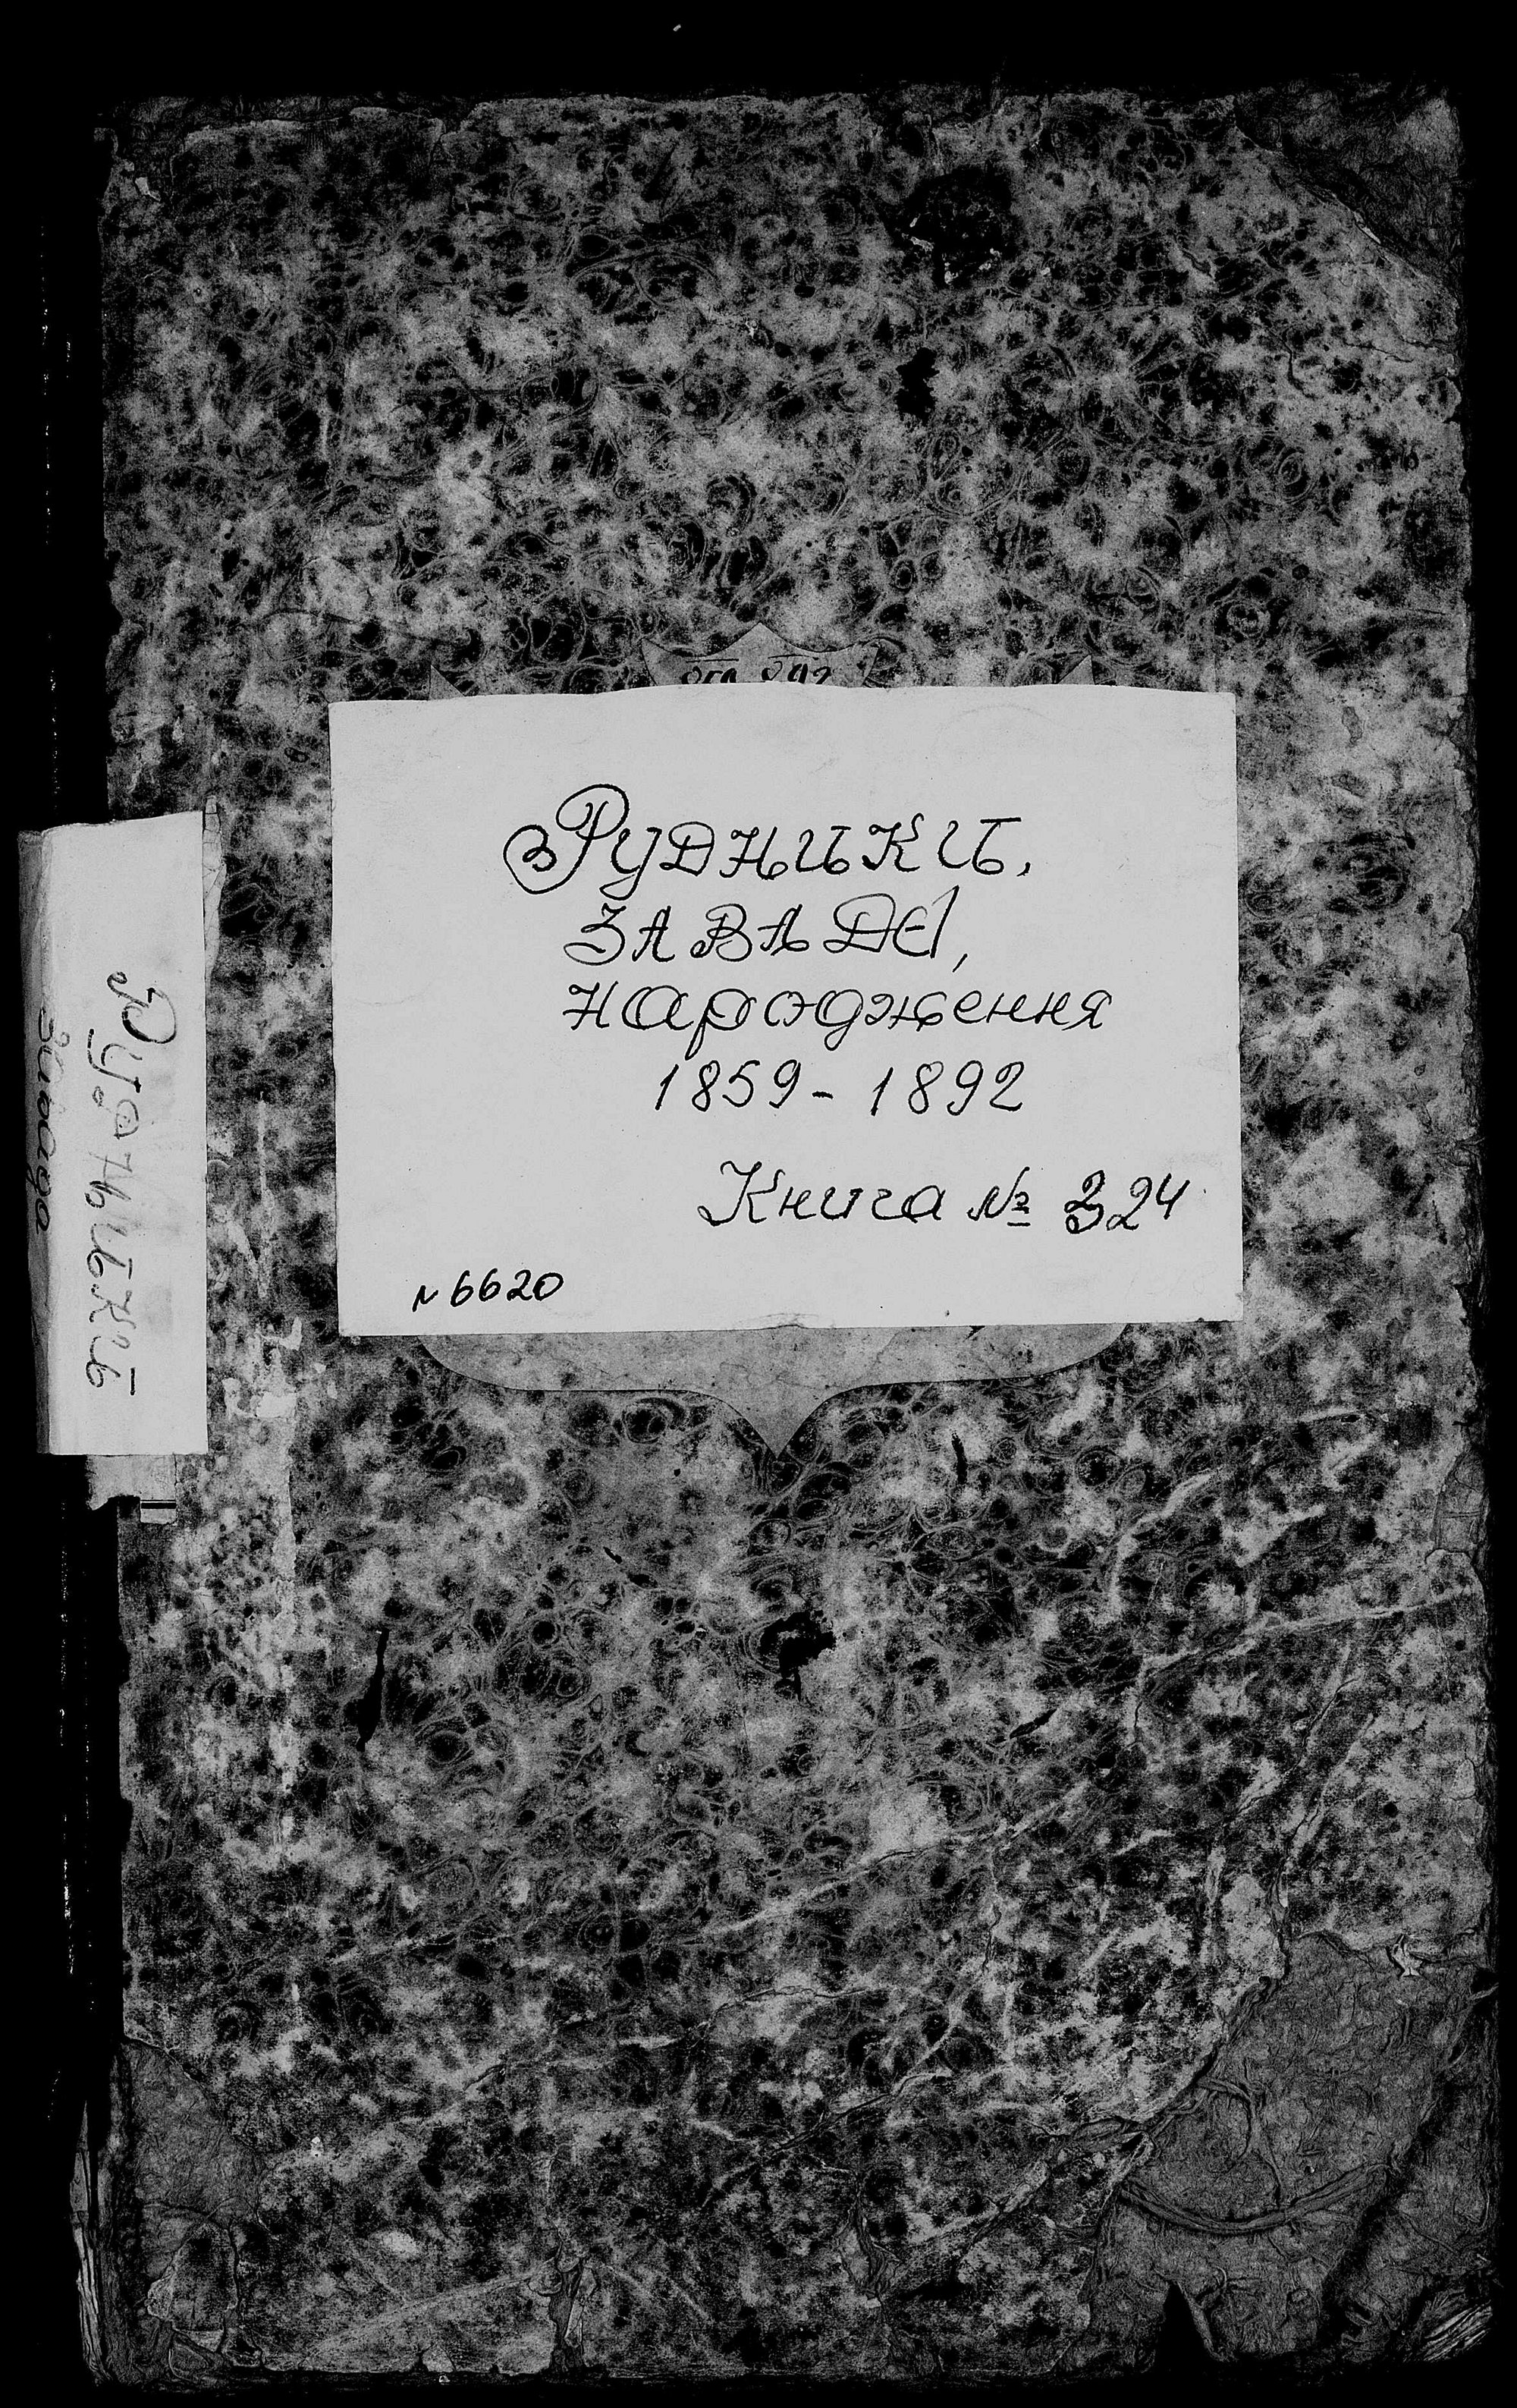 РУДНИКИ,
ЗАВАДА,
народження
1859-1892
Книга № 324
N 6620
Рудники
Завада